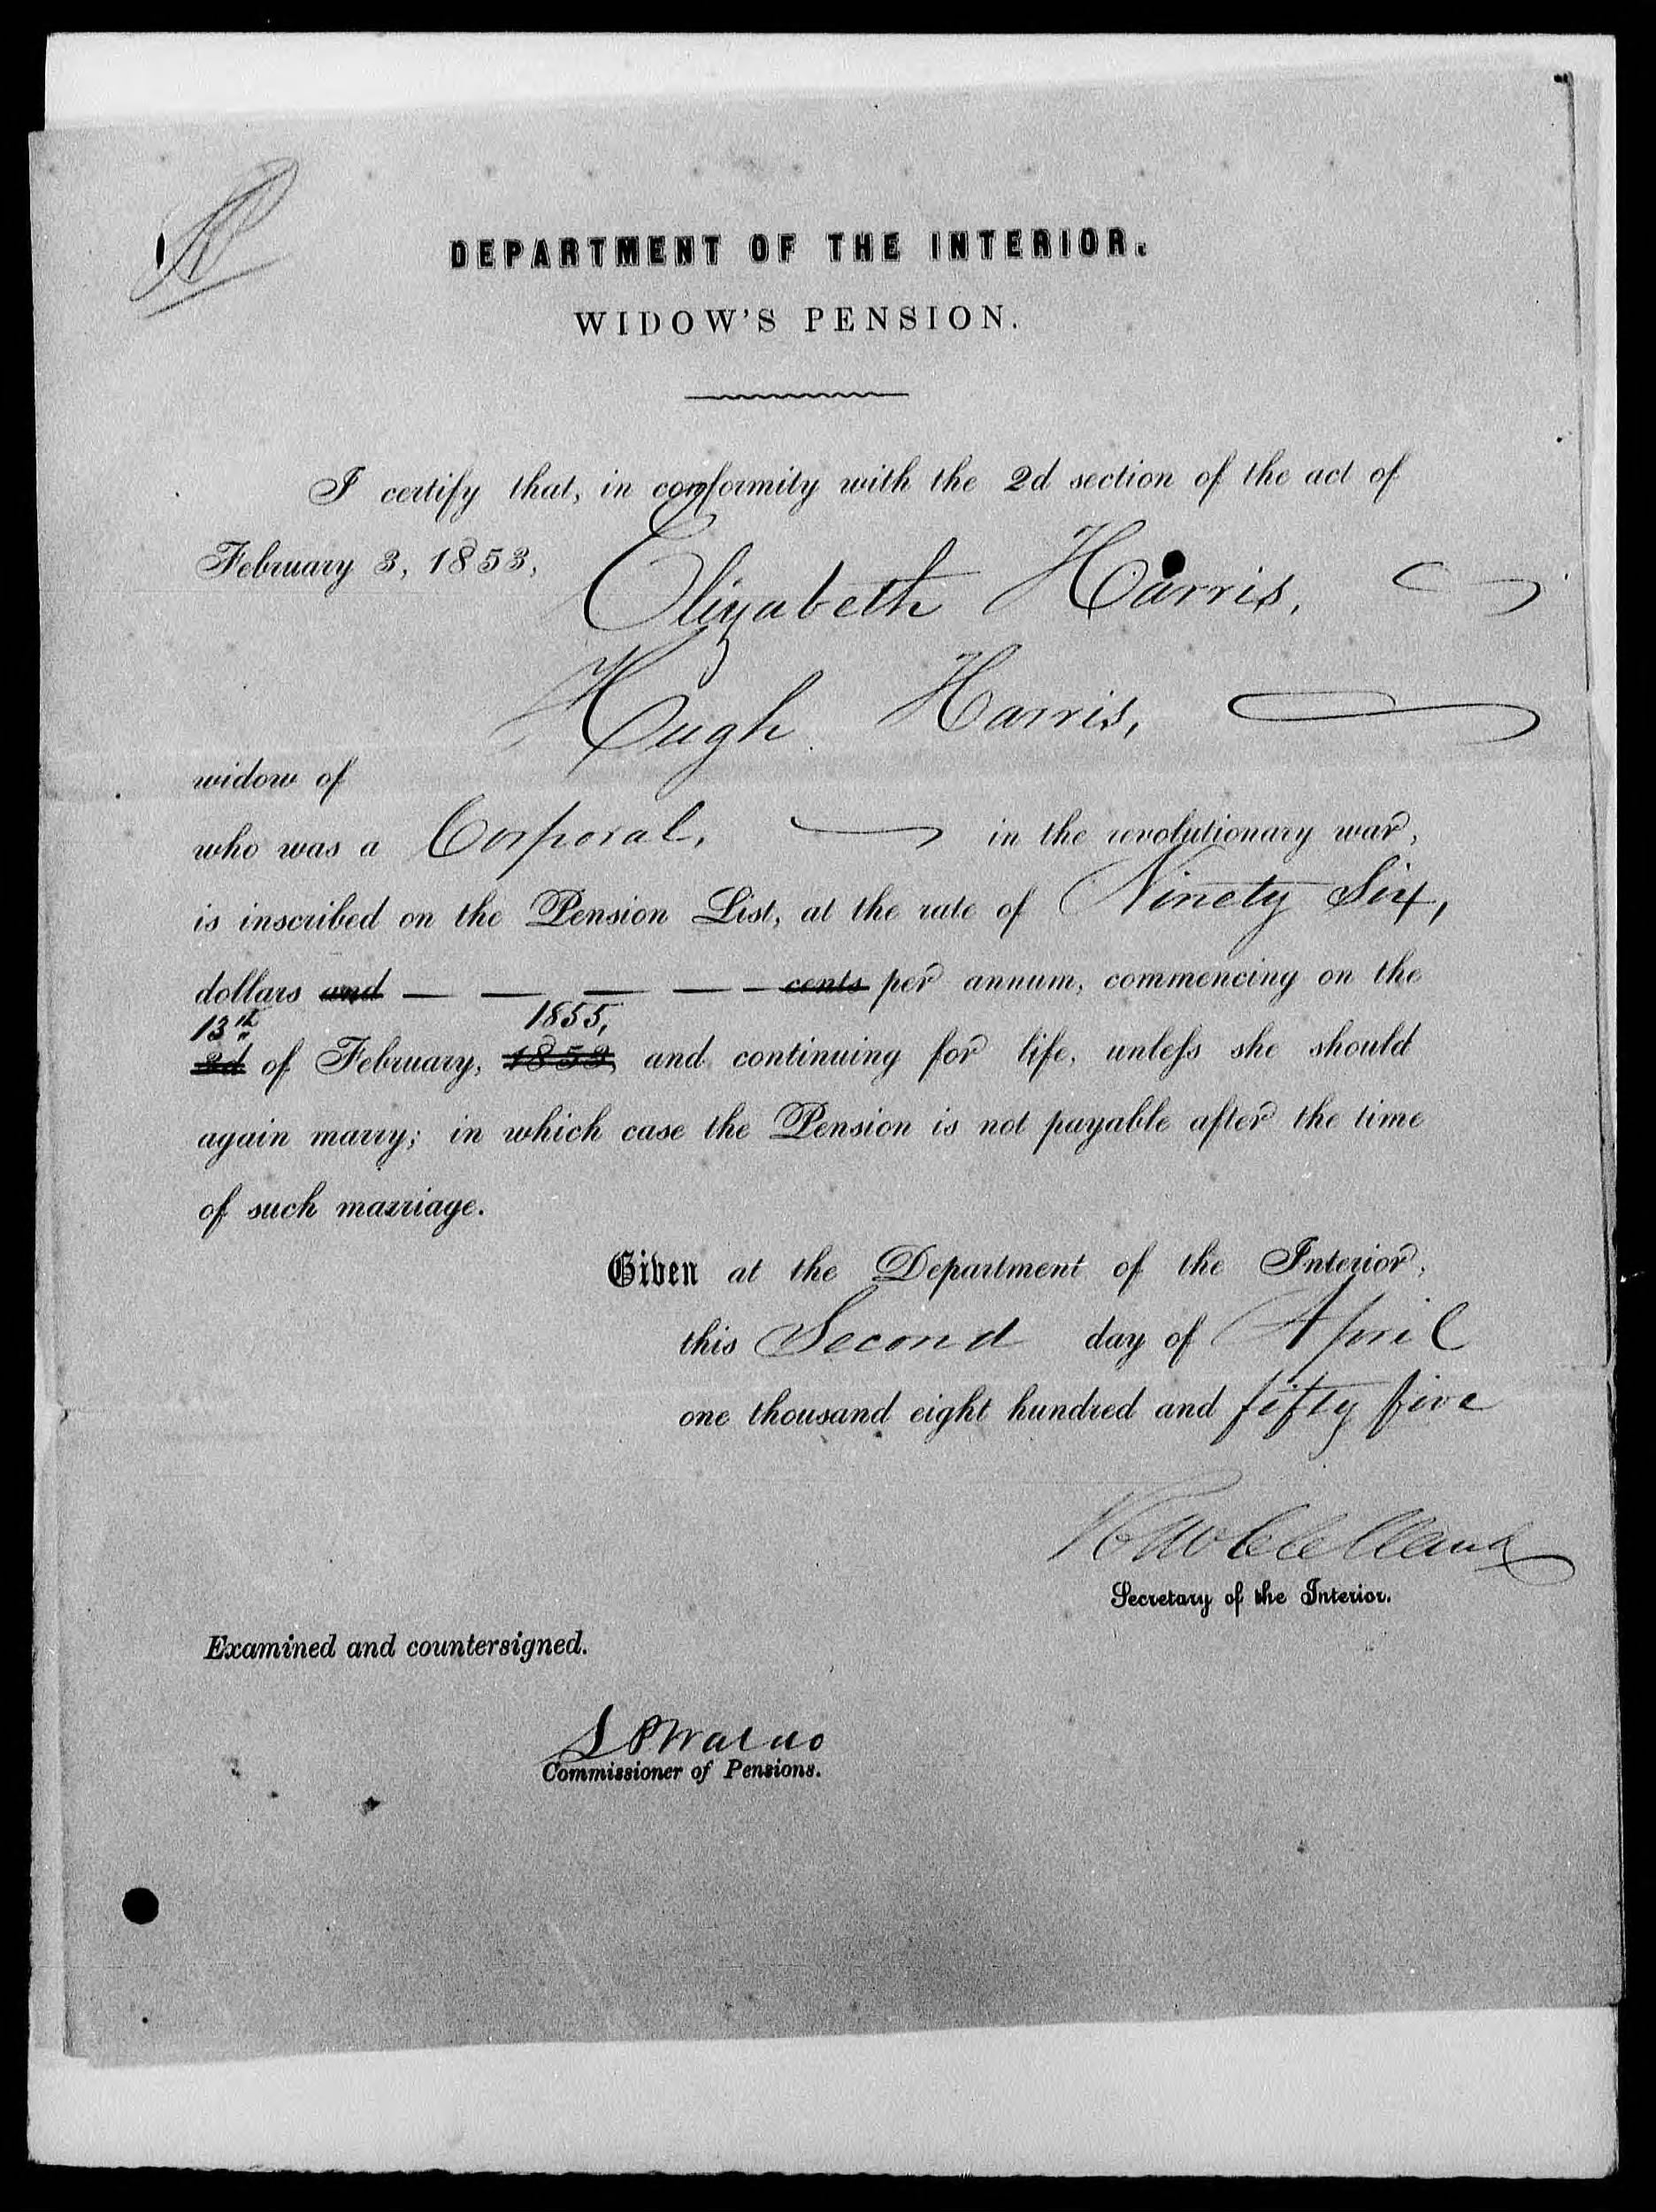 DEPARTMENT OF THE INTERIOR.
WIDOW'S PENSION.
I certify that, in conformity with the 2d section of the act of
February 3, 1853, Elizabeth Harris,
Hugh Harris,
widow of
who was a Corporal, in the revolutionary war,
is inscribed on the Pension List, at the rate of Ninety Six,
dollars and — — — — — cents per annum, commencing on the
13th 1855,
3d of February, 1853, and continuing for life, unless she should
again marry; in which case the Pension is not payable after the time
of such marriage.
Given at the Department of the Interior,
this Second day of April
one thousand eight hundred and fifty five
R McClelland
Secretary of the Interior.
Examined and countersigned.
L P Waldo
Commissioner of Pensions.